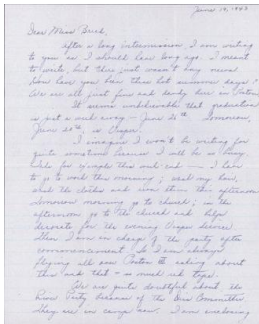 June 19, 1943
Dear Miss Breed,
After a long intermission, I am writing
to you as I should have long ago. I meant
to write, but there just wasn't any news.
How have you been these hot summer days?
We are all just fine and dandy here in Poston
It seems unbelievable that graduation
is just a week away — June 26th. Tomorrow,
June 20th is
I imagine I won't be writing for
quite sometime because I will be so busy.
Take for example this week end — I have
to go to work this morning; wash my hair,
wash the clothes and iron them this afternoon
Tomorrow morning go to church; in the
afternoon go to the church and help
decorate for the evening service.
Then I am in charge of the party after
commencement so I am always
Poston III asking about
this and that — so much red tape.
We are quite doubtful about the
Party because of the Dies Committee
They are in camp now. I am enclosing